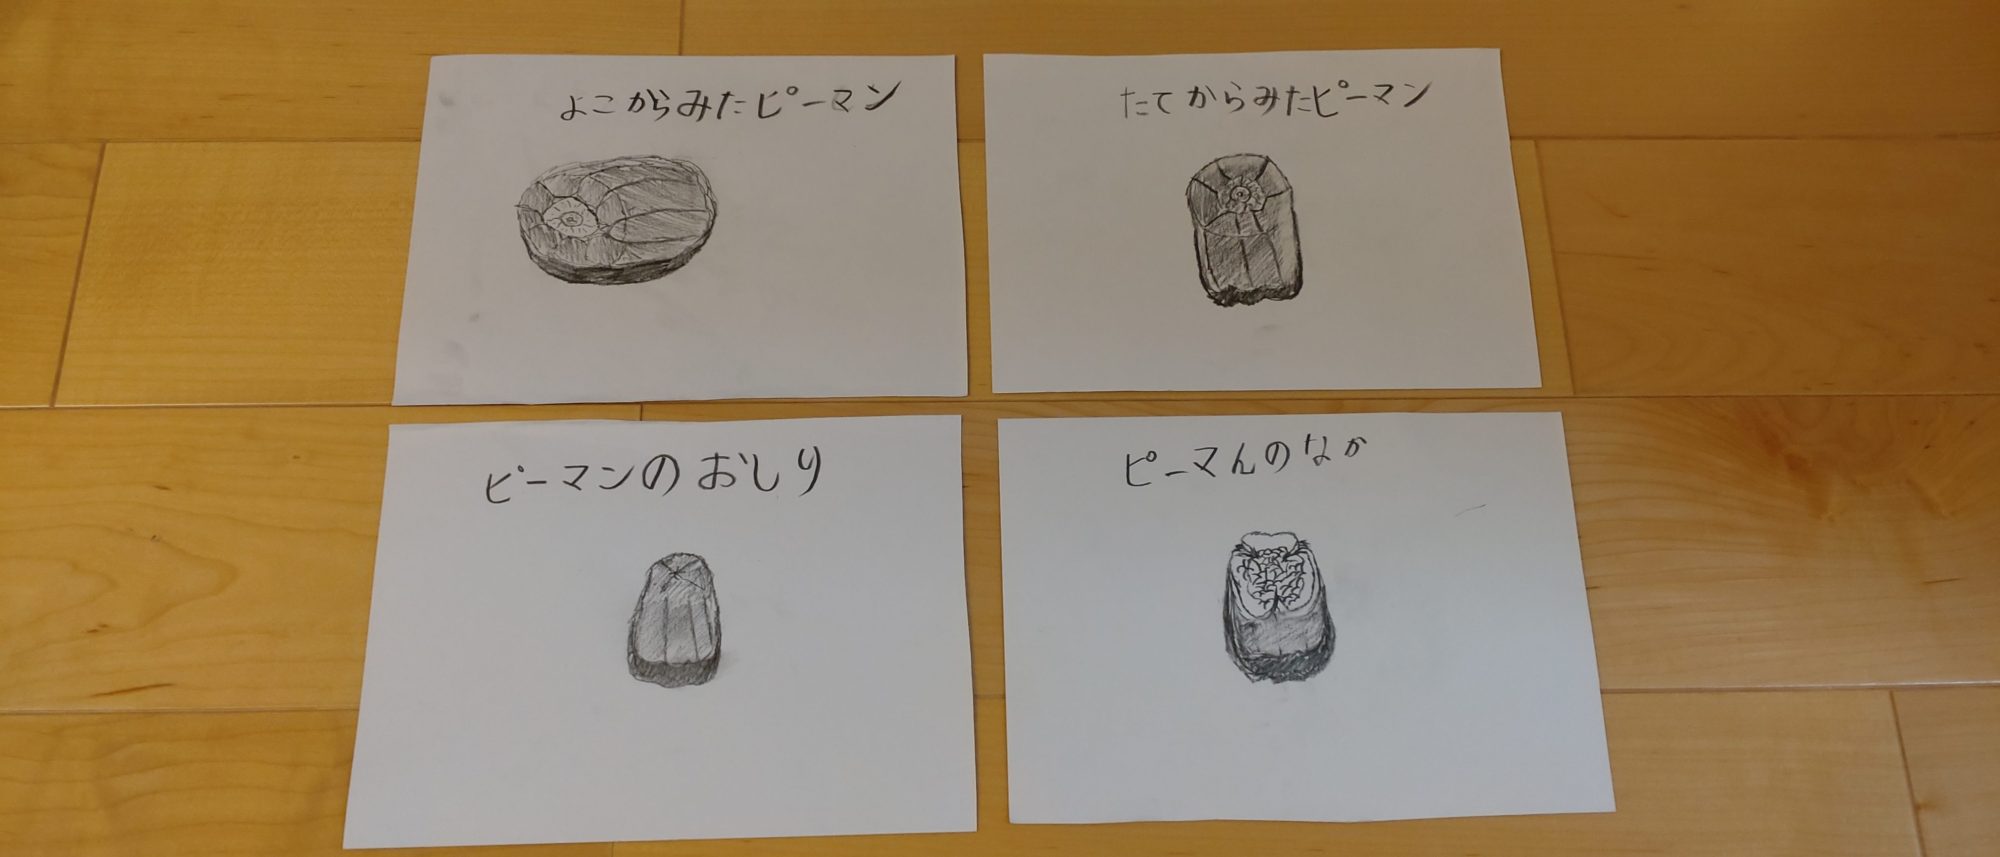 よこからみたピーマン
たてからみたピーマン
ピーマンのおしり
ピーマんのなか